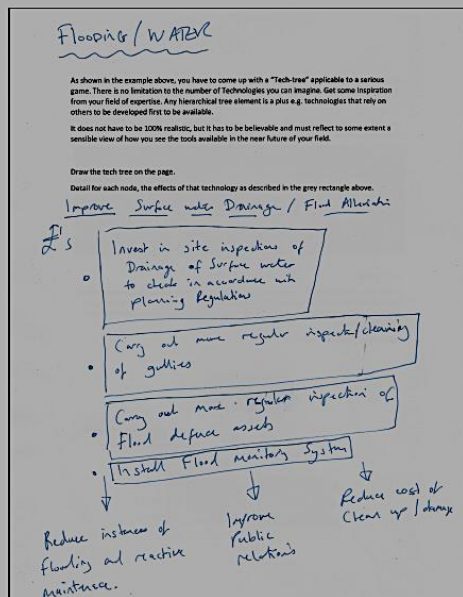 FLOODING / WATER
As shown in the example above, you have to come up with a "Tech-tree" applicable to a serious
game. There is no limitation to the number of Technologies you can imagine. Get some inspiration
from your field of expertise. Any hierarchical tree element is a plus e.g. technologies that rely on
others to be developed first to be available.
It does not have to be 100% realistic, but it has to be believable and must reflect to some extent a
sensible view of how you see the tools available in the near future of your field.
Draw the tech tree on the page.
Detail for each node, the effects of that technology as described in the grey rectangle above.
Improve Surface water Drainage / Flood Alleviation
£'s
Invest in site inspections of
Drainage of Surface water
to check in accordance with
planning Regulations
Carry out more regular inspection/cleaning
of gullies
Carry out more regular inspection of
Flood defence assets
Install Flood monitory System
Reduce instances of
flooding and reactive
maintenence.
Improve
Public
relations
Reduce cost of
Clean up / damage